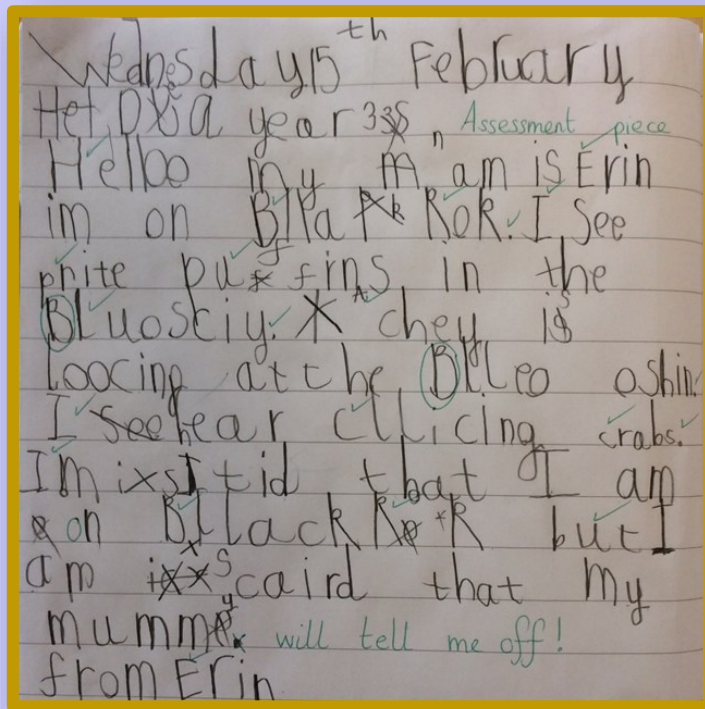 Wednesday 15th February
year 3 Assessment piece
Helloo my nam is Erin
im on Blla Rok. I see
prite puffins in the
Bluoskiy. A chey is
loocing at the Blleo oshin.
I hear cllicing crabs.
I'm ixsItid that I am
on Bllack RoK but I
am scaird that my
mummy will tell me off!
from Erin